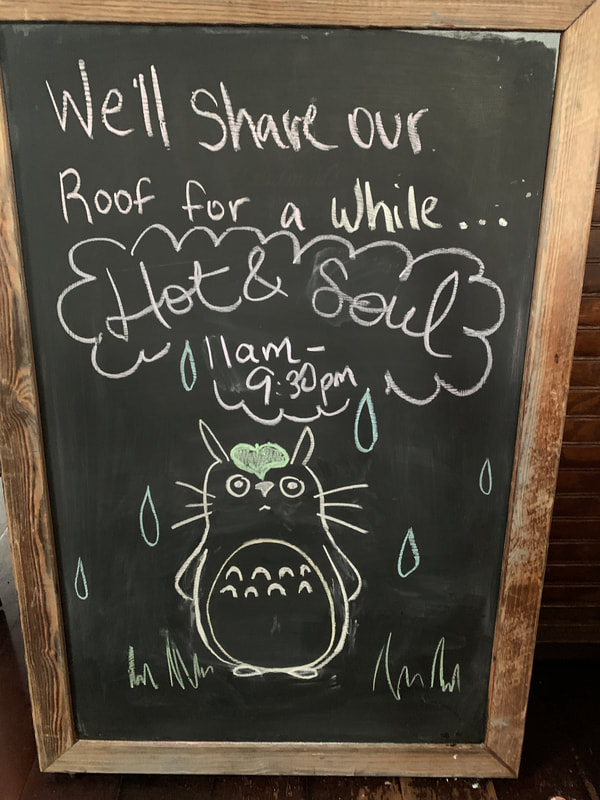 We'll Share our
Roof for a while...
Hot & Soul
11am-
9:30pm